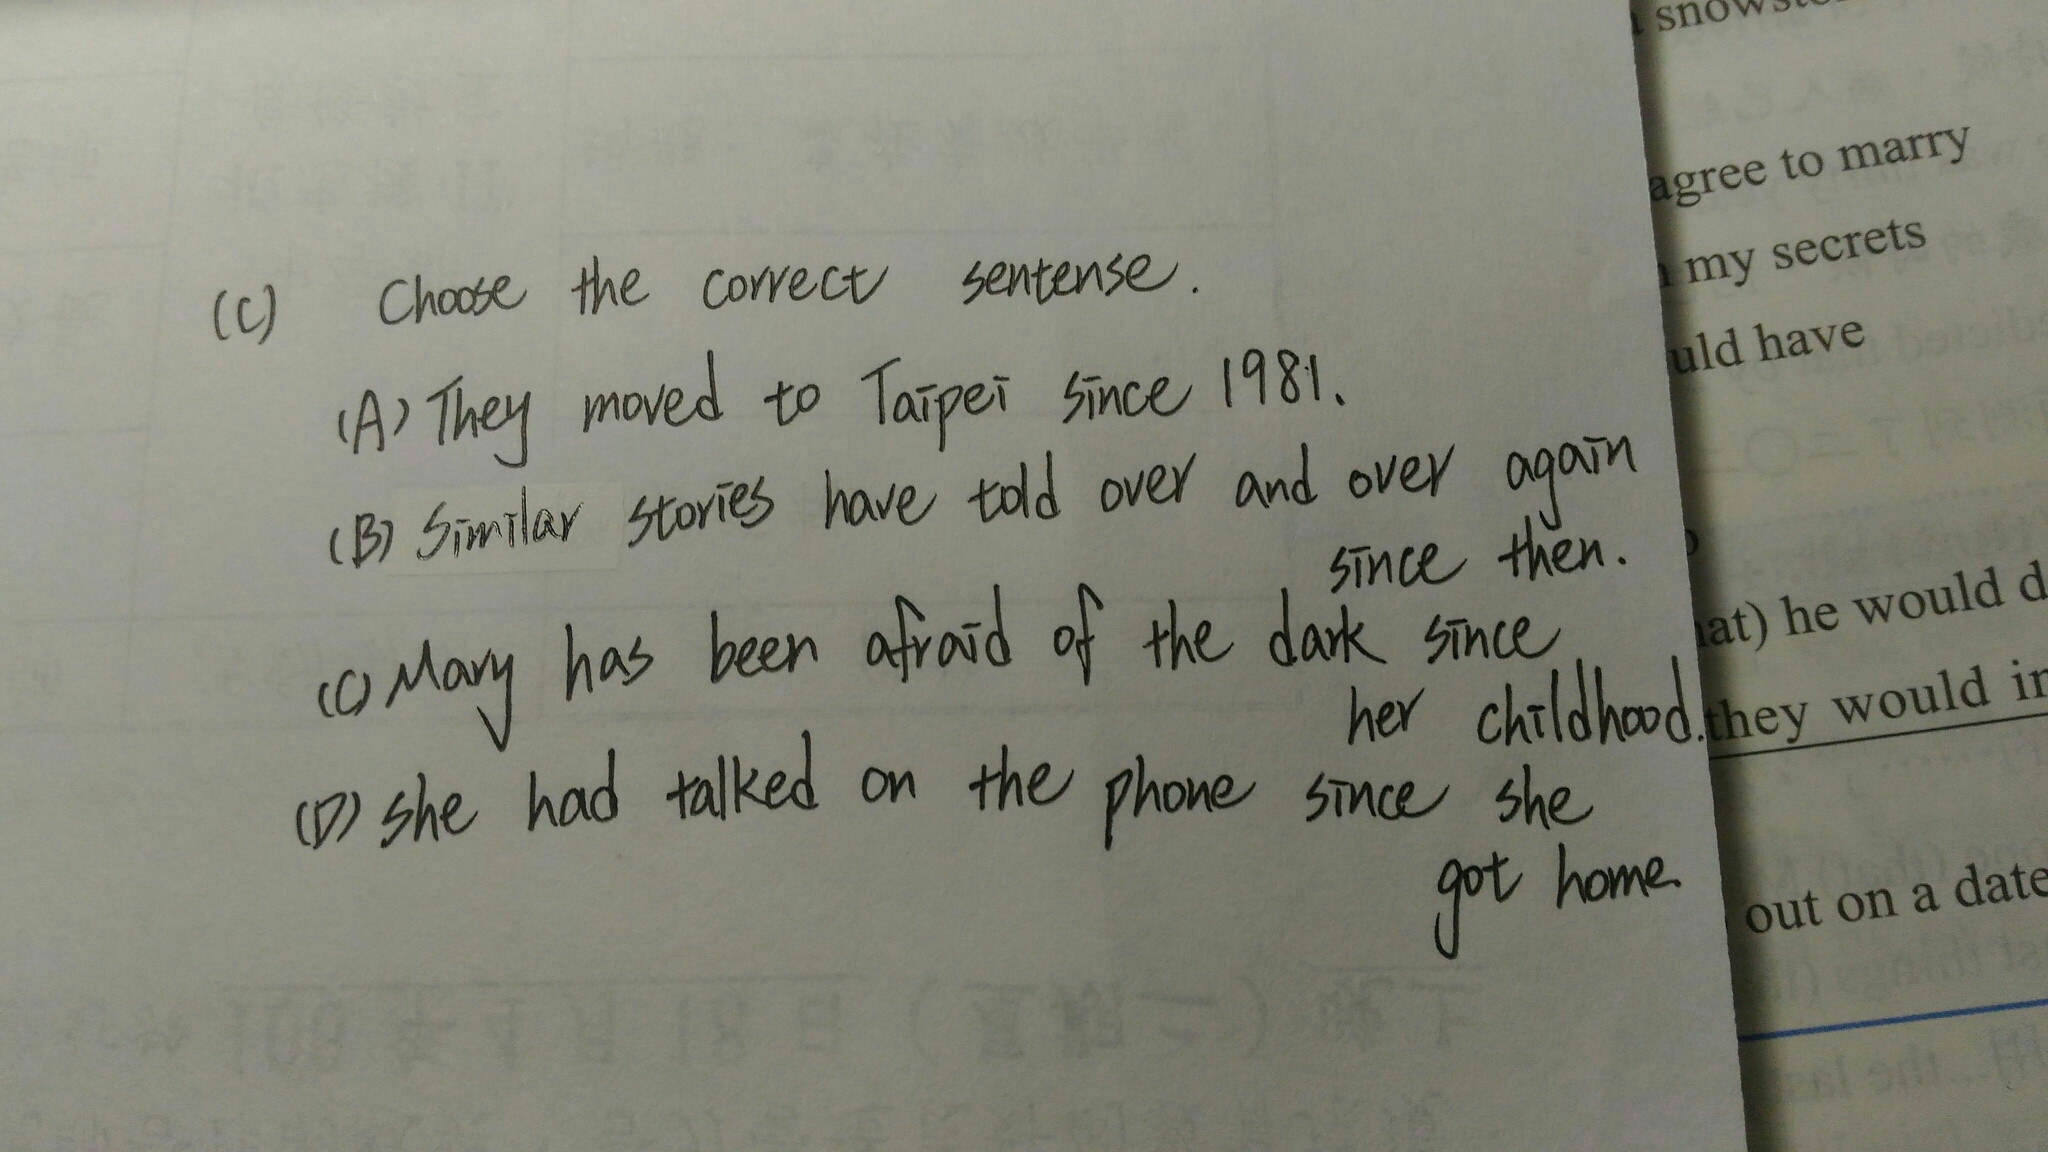 (C) Choose the correct sentense.
(A) They moved to Taipei since 1981.
(B) Similar stories have told over and over again
since then.
(C) Mary has been afraid of the dark since
her childhood.
(D) She had talked on the phone since she
got home.
agree to marry
my secrets
uld have
at) he would d
they would in
out on a date